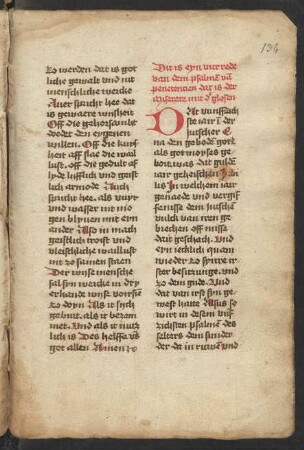 134
zo werden dat is got
liche gewalt und nit
menschliche wercke
Auer spricht hee dat
is gewaere wysheit
Off die gehorsamheit
doedet den eygenen
willen. Off die kuysch
heit aff slae die wail
lust. off die gedult ai
lyde lufflich und geist
lich armode Auch
spricht hee. als vuyr
und wasser nit mo
gen blyuen mit eyn
ander Also in mach
geistlich troist und
vleischliche waillust
mit zo samen staen
Der wyse mensche
sal syn wercke in dry
erhande wyse versen
zo doyn Als it sich
geburt. als it bezem
met. Und als it nutz
lich is Des helffe vns
got allen Amen
Dit is eyn vurrede
van dem psalme vā
penetencien dat is der
miserere mit der glosen
Dat vunfftich
ste iaer der
iuetscher E
na den gebode got
als got moyses ge
boit was dat gulden
iaer geheisschen Jubi
leus In welchem iaer
genaede und vergif
fenisse dem iuetsche
volck van yren ge
brechen off missedat
dair geschach. Und
eyn iecklich quam
weder zo syme ir
ster besitzunge. und
zo dem gude. Und
dat van irst syn ge
west hatte. Alsus so
wirt in desem vuff
zichsten psalme des
selters dem sunder
der dat in ruwen und